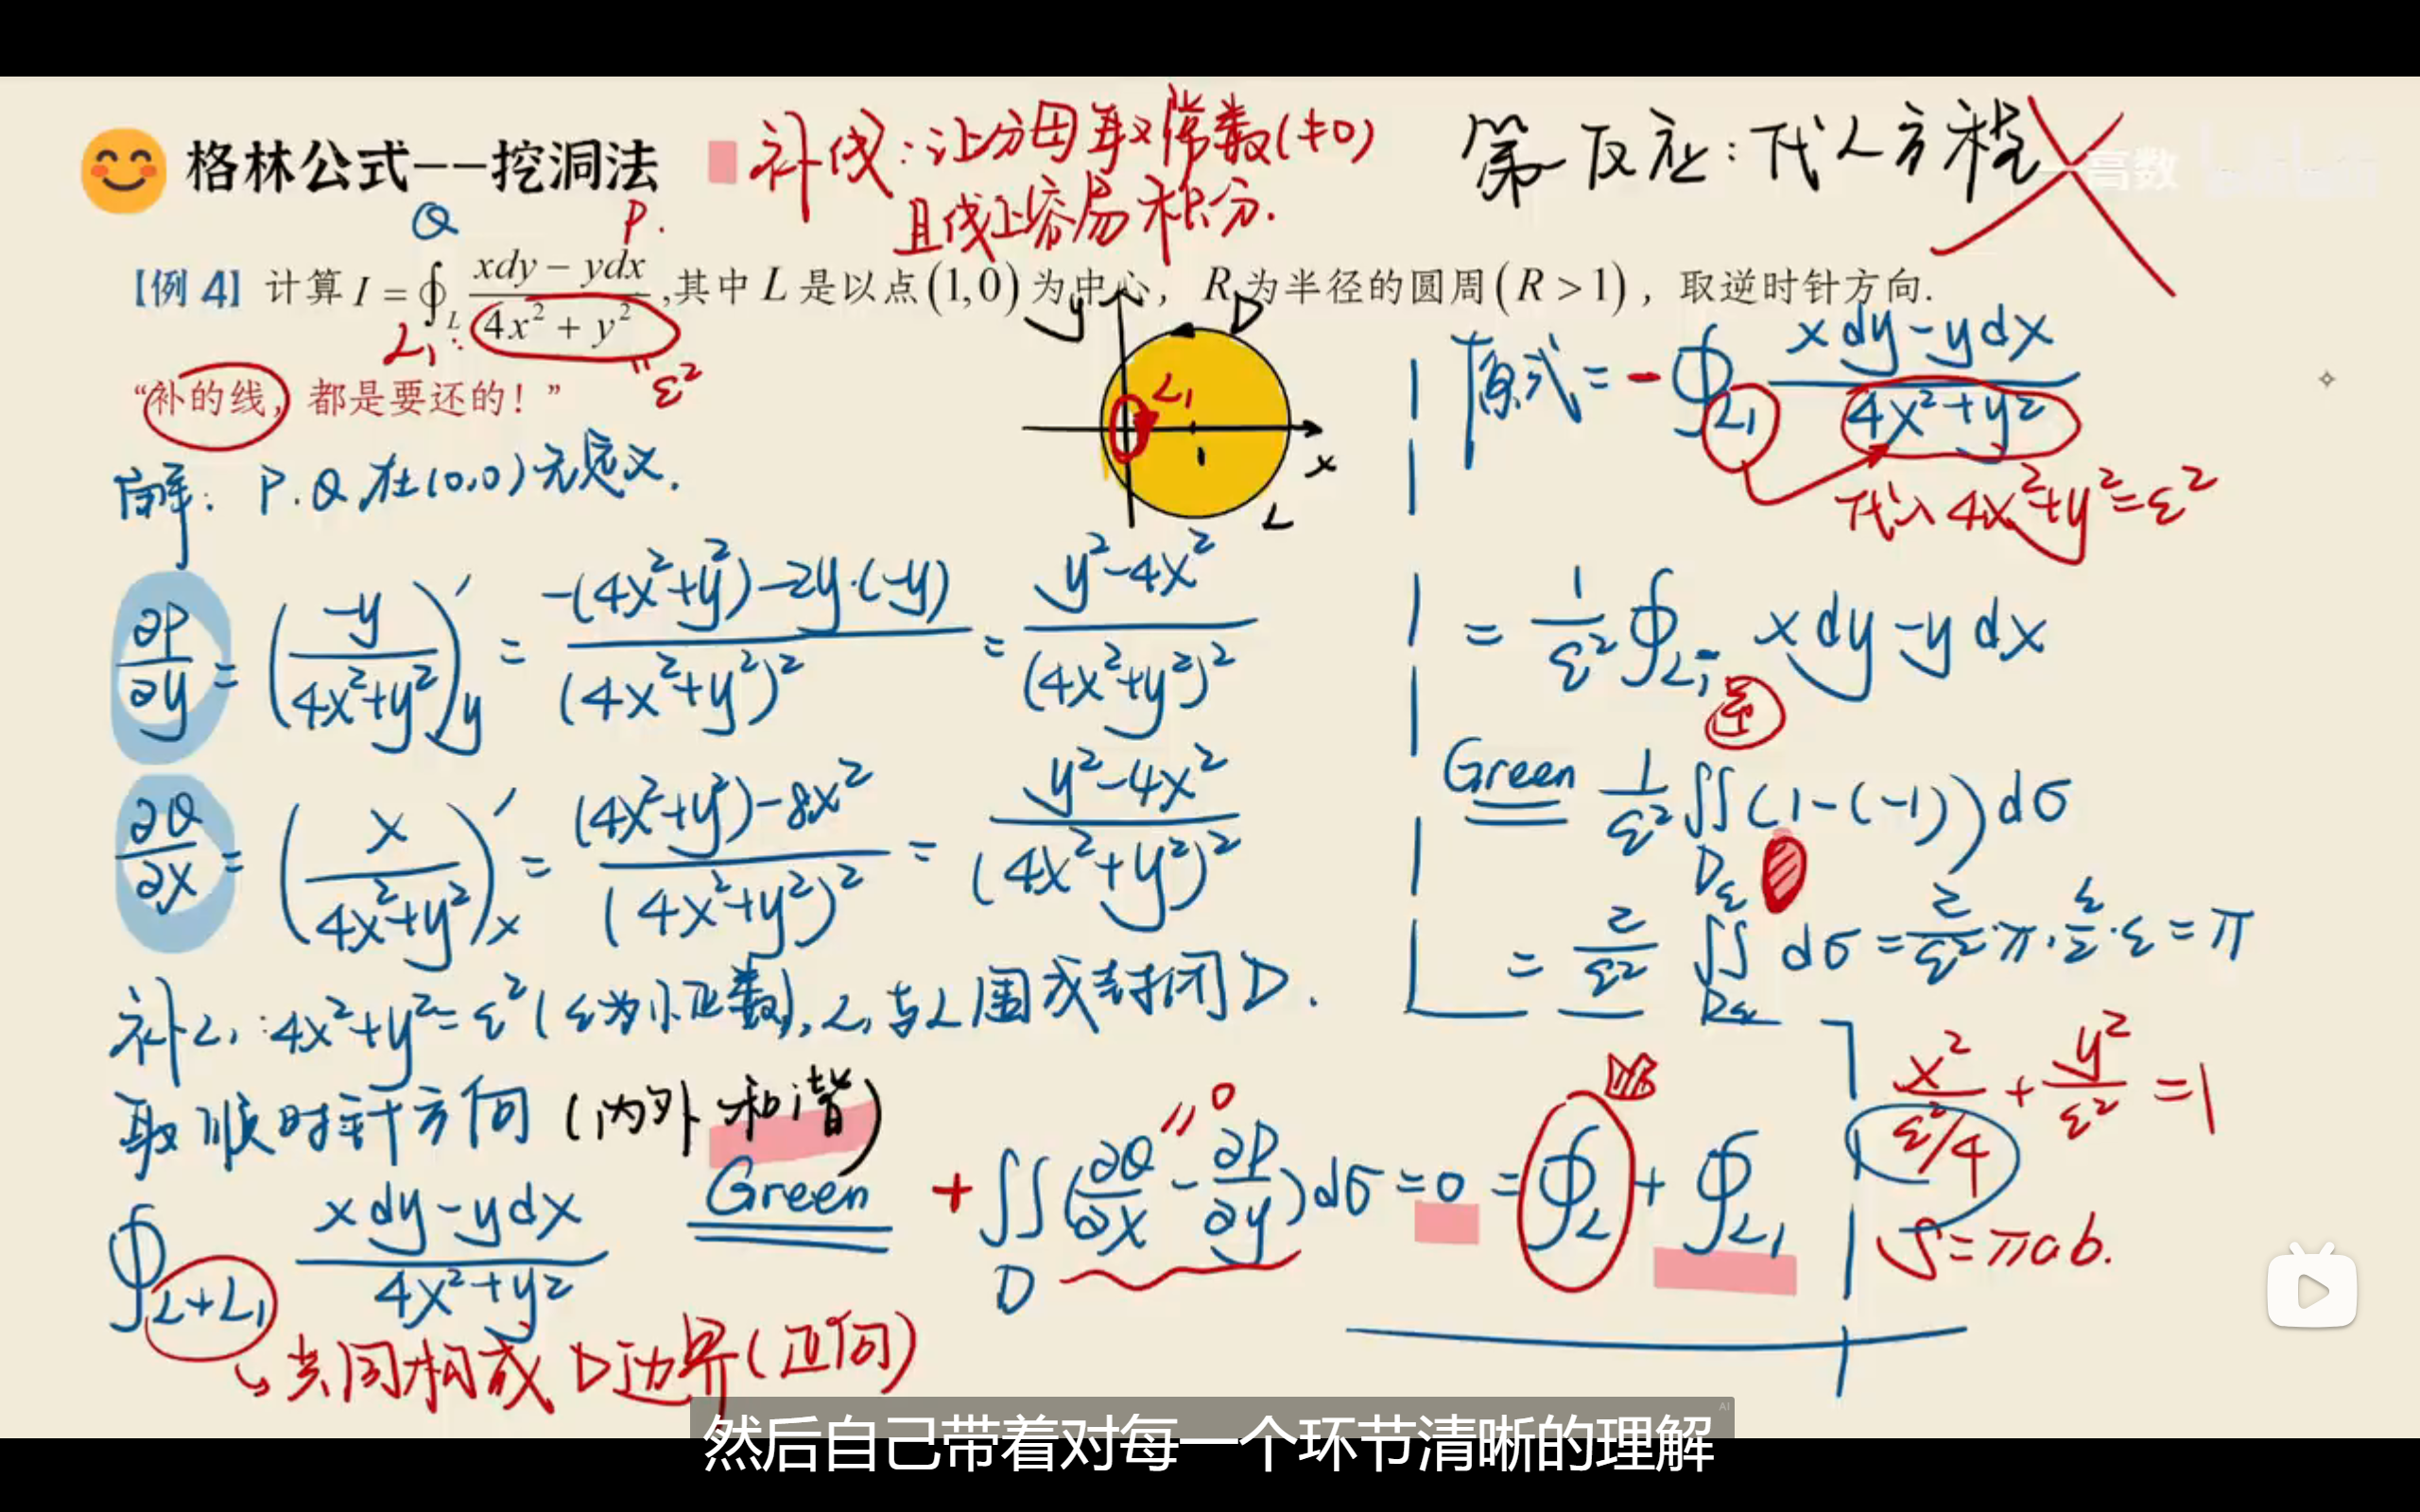 格林公式——挖洞法
补线：让分母取常数(≠0)
且线上容易积分.
第一反应：代L方程
高数
Q P.
【例 4】计算 I = ∮_L (xdy − ydx)/(4x² + y²) ,其中 L 是以点 (1,0) 为中心， R 为半径的圆周 (R > 1) ，取逆时针方向.
L₁: " ε²
“补的线，都是要还的！”
y D
L₁
1 x
L
解：P.Q 在(0,0)无定义.
∂P/∂y = (−y/(4x²+y²))'_y = (−(4x²+y²)−2y·(−y))/(4x²+y²)² = (y²−4x²)/(4x²+y²)²
∂Q/∂x = (x/(4x²+y²))'_x = ((4x²+y²)−8x²)/(4x²+y²)² = (y²−4x²)/(4x²+y²)²
补L₁:4x²+y²=ε²(ε为小正数), L₁与L围成封闭D.
取顺时针方向 (内外和谐)
∮_{L+L₁} (xdy−ydx)/(4x²+y²) Green + ∬_D (∂Q/∂x − ∂P/∂y)dσ = 0 = ∮_L + ∮_{L₁}
" 0
共同构成D边界(正向)
原式 = − ∮_{L₁} (xdy−ydx)/(4x²+y²)
代入4x²+y²=ε²
= 1/ε² ∮_{L₁⁻} xdy−ydx
逆
Green 1/ε² ∬_{Dε} (1−(−1))dσ
= 2/ε² ∬_{Dε} dσ = 2/ε²·π·ε/2·ε = π
x²/(ε²/4) + y²/ε² = 1
S=πab.
然后自己带着对每一个环节清晰的理解
AI